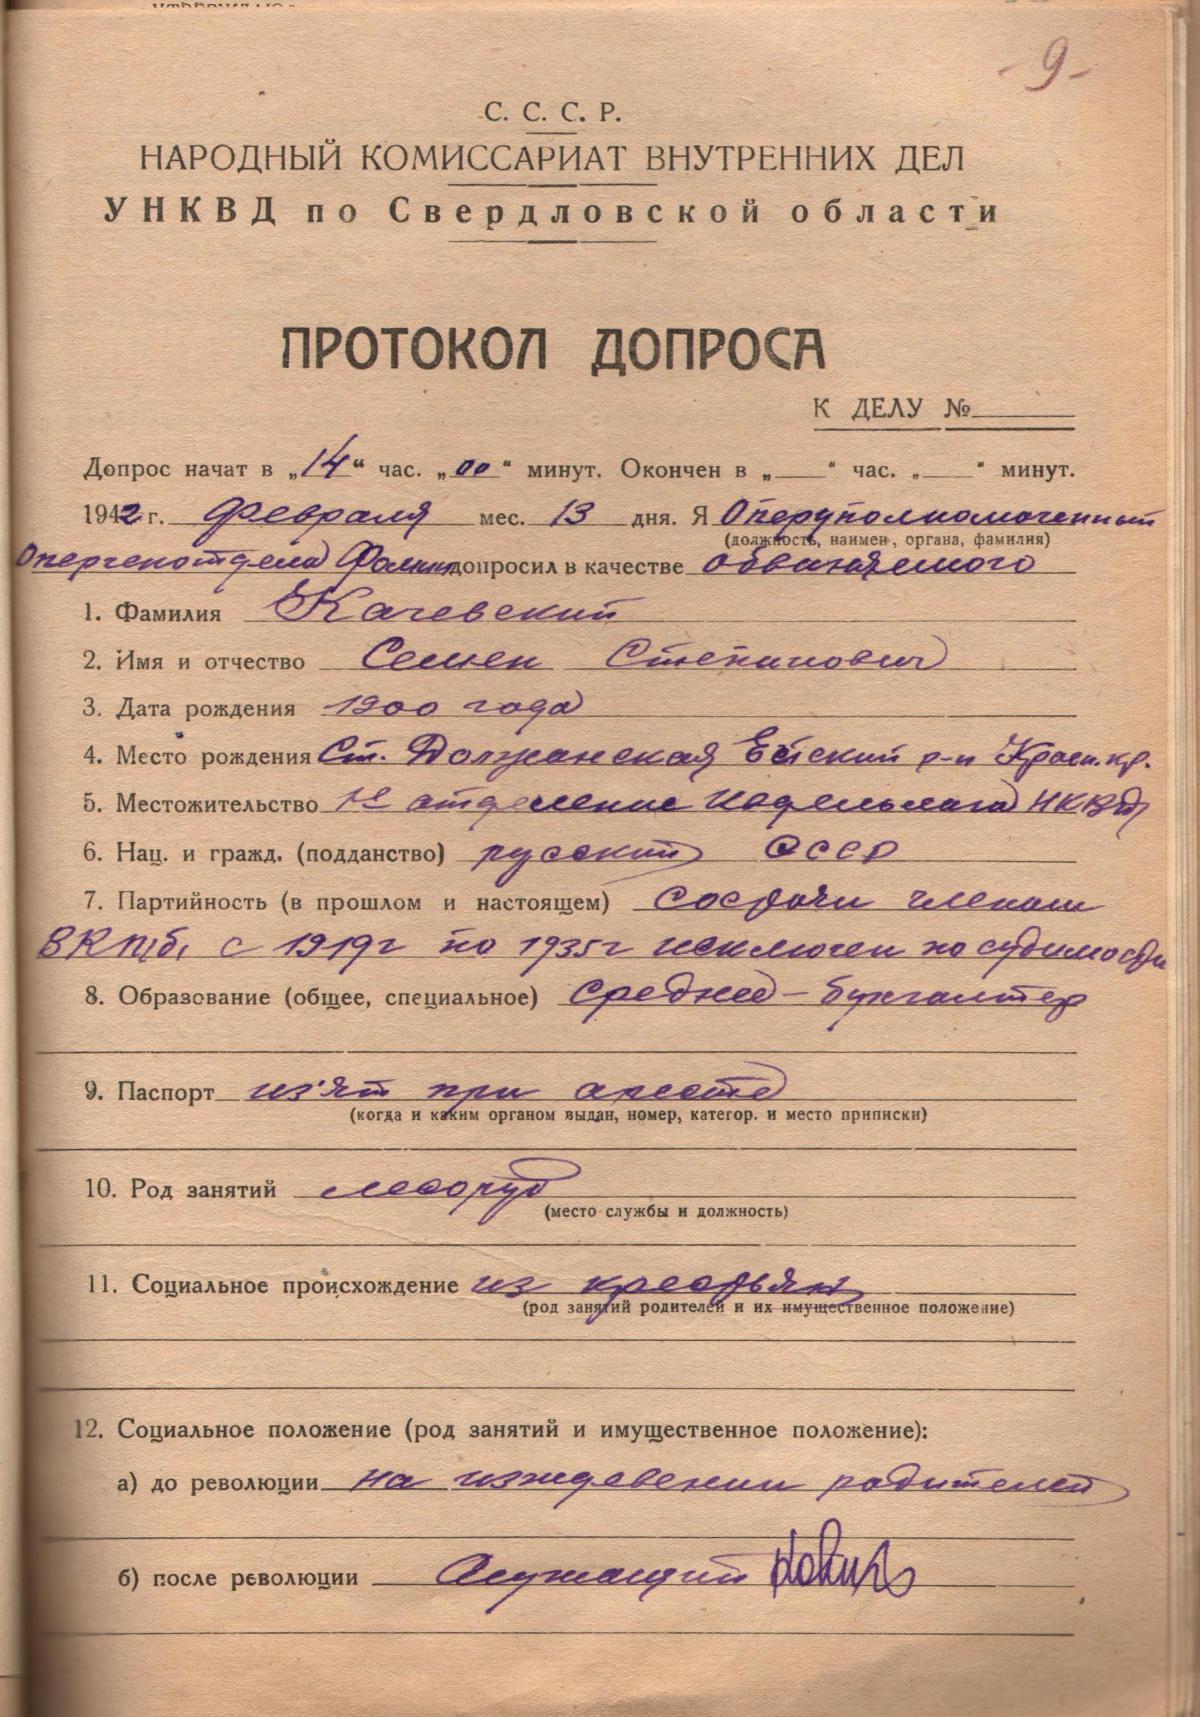 -9-
С. С. С. Р.
НАРОДНЫЙ КОМИССАРИАТ ВНУТРЕННИХ ДЕЛ
УНКВД по Свердловской области
ПРОТОКОЛ ДОПРОСА
К ДЕЛУ №
Допрос начат в „14“ час. „00“ минут. Окончен в „ “ час. „ “ минут.
1942 г. февраля мес. 13 дня. Я Оперуполномоченный
(должность, наимен, органа, фамилия)
Оперчекотдела допросил в качестве обвиняемого
1. Фамилия Качевский
2. Имя и отчество Семен Степанович
3. Дата рождения 1900 года
4. Место рождения Ст. Должанская Ейский р-н Красн. кр.
5. Местожительство 1е отделение Ивдельлага НКВД
6. Нац. и гражд. (подданство) русский СССР
7. Партийность (в прошлом и настоящем) состоял членом
ВКПб, с 1919г по 1935г исключен по судимости
8. Образование (общее, специальное) среднее – бухгалтер
9. Паспорт из'ят при аресте
(когда и каким органом выдан, номер, категор. и место приписки)
10. Род занятий лесоруб
(место службы и должность)
11. Социальное происхождение из крестьян
(род занятий родителей и их имущественное положение)
12. Социальное положение (род занятий и имущественное положение):
а) до революции на иждевении родителей
б) после революции Служащий